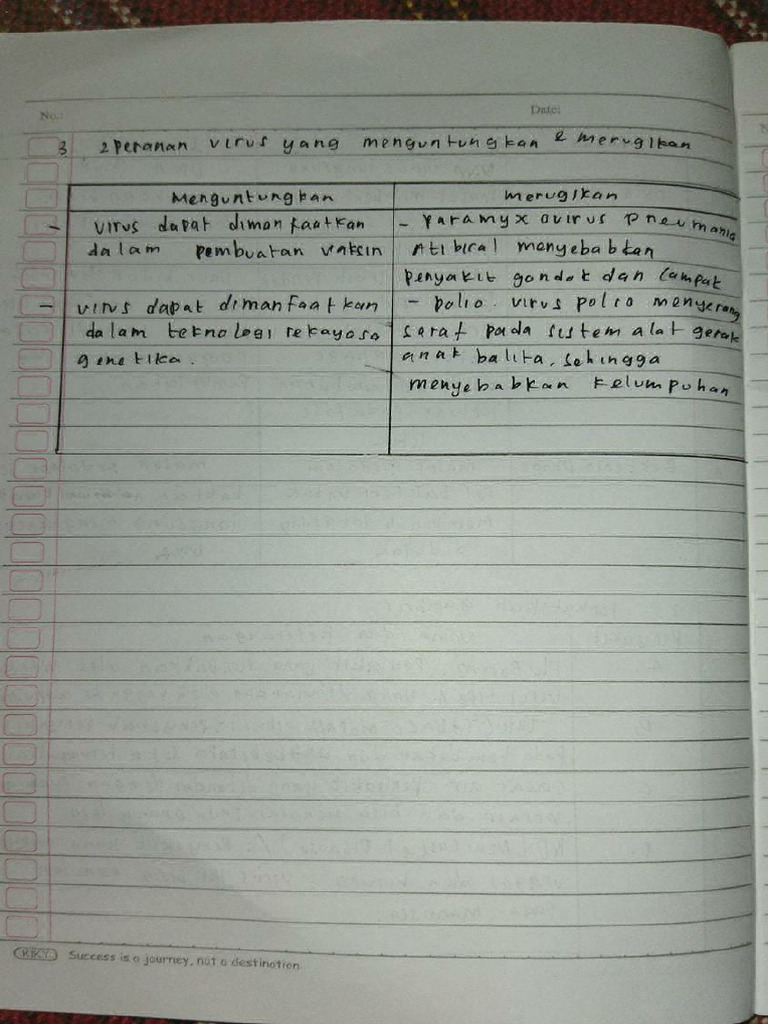 No.: Date:
3. 2 Peranan virus yang menguntungkan & merugikan
Menguntungkan merugikan
- virus dapat dimanfaatkan
dalam pembuatan vaksin
- virus dapat dimanfaatkan
dalam teknologi rekayasa
genetika.
- Paramyxovirus Pneumania
Atibiral menyebabkan
penyakit gondok dan campak
- polio. virus polio menyerang
saraf pada sistem alat gerak
anak balita, sehingga
menyebabkan kelumpuhan
KIKY Success is a journey, not a destination